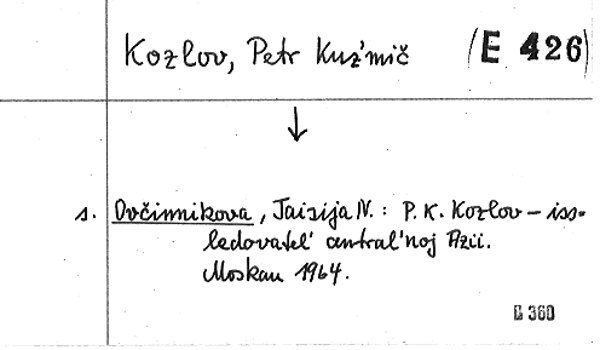 Kozlov, Petr Kuz'mič (E 426)
↓
s. Ovčinnikova, Taisija N.: P. K. Kozlov – iss-
ledovatel' central'noj Azii.
Moskau 1964.
C 360